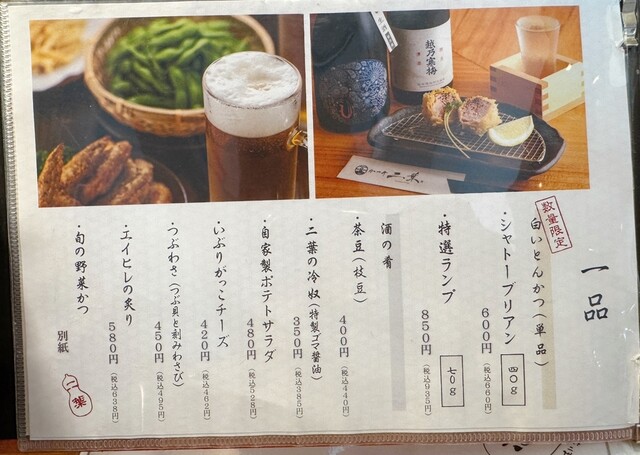 越乃寒梅
二葉
一品
数量限定
白いとんかつ(単品)
・シャトーブリアン
四〇g
600円(税込660円)
・特選ランプ
七〇g
850円(税込935円)
酒の肴
・茶豆(枝豆)
400円(税込440円)
・二葉の冷奴(特製ゴマ醤油)
350円(税込385円)
・自家製ポテトサラダ
480円(税込528円)
・いぶりがっこチーズ
420円(税込462円)
・つぶわさ(つぶ貝と刻みわさび)
450円(税込495円)
・エイヒレの炙り
580円(税込638円)
・旬の野菜かつ
別紙
二葉